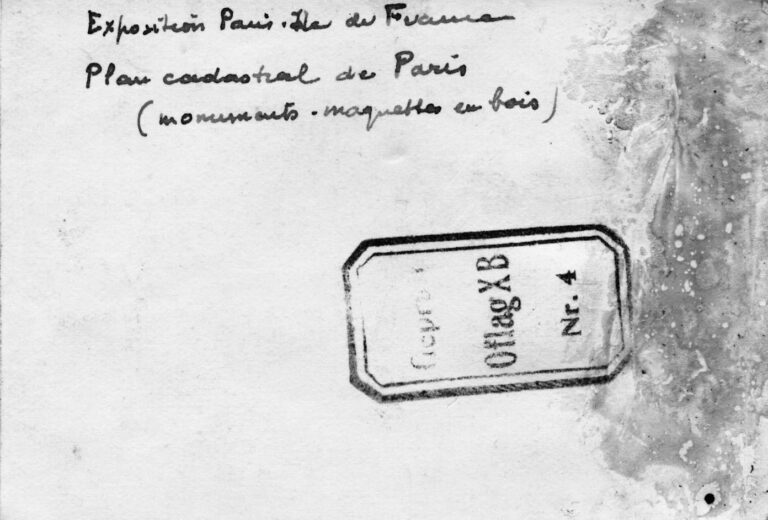 Exposition Paris-Ile de France
Plan cadastral de Paris
(monuments - maquettes en bois)
Oflag X B
Nr. 4